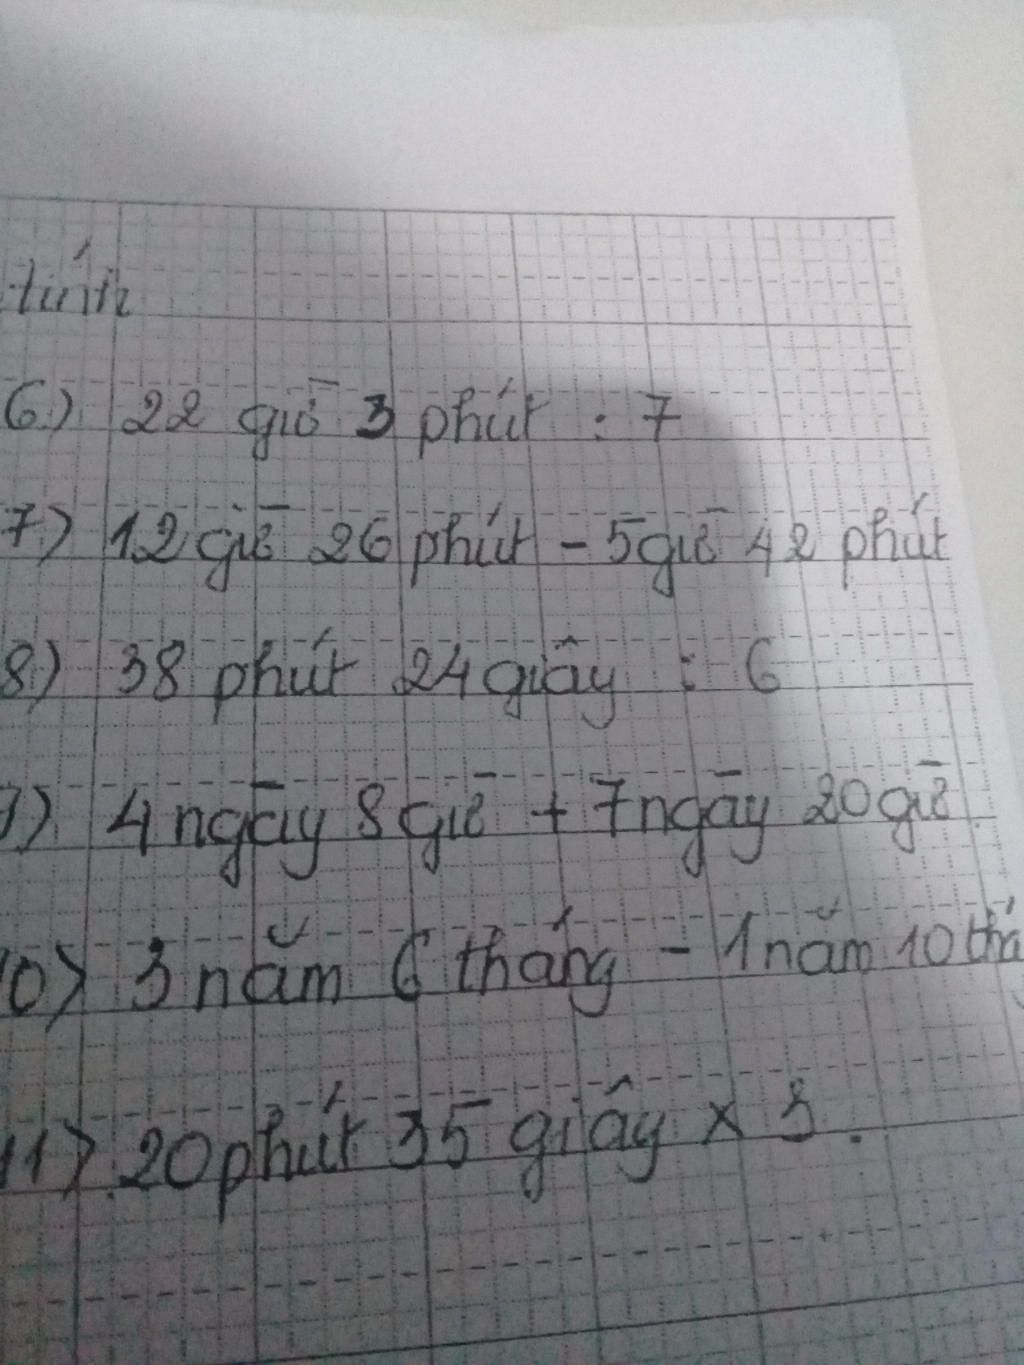 tính
6) 22 giờ 3 phút : 7
7) 12 giờ 26 phút - 5 giờ 42 phút
8) 38 phút 24 giây : 6
9) 4 ngày 8 giờ + 7 ngày 20 giờ
10) 3 năm 6 tháng - 1 năm 10 thá
11) 20 phút 35 giây x 3.